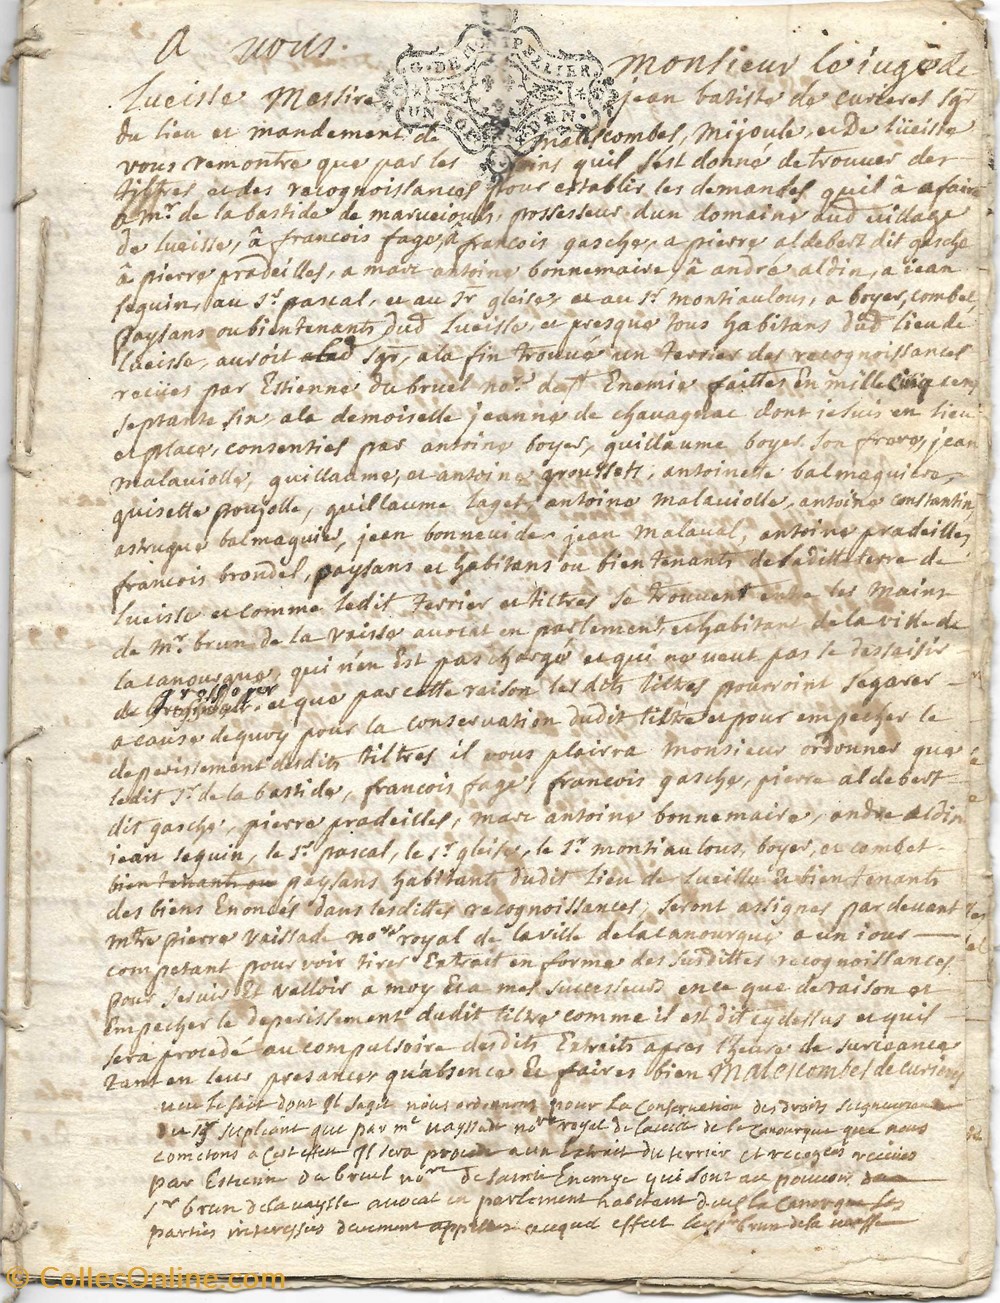 A vous
G. DE MONTPELLIER
UN SOL
DEN.
Monsieur le juge de
Lueisse Messire jean batiste de curieres sgr
du lieu et mandement de malescombes, Mijoule, et De Lueisse
vous remontre que par les soins quil s'est donné de trouver des
tiltres et des recognoissances pour establir les demandes quil â a faire
a mr. de la bastide de maruejouls, possesseur d'un domaine aud village
de Lueisse, â francois fage, â francois gasche, a pierre aldebert dit gasche
â pierre pradeilles, a marc antoine bonnemaire, â andré aldin, a jean
seguin, au Sr. pascal, et au Sr gleise, et au Sr montiaulous, a boyer, combet
paysans ou bientenants dud Lueisse, et presque tous habitans dud Lieu de
Lueisse, auroit led sgr, a la fin trouvé un terrier des recognoissances
recües par Estienne du bruel nore. de ste Enemie faittes En mille cinq cens
septante six a la demoiselle jeanne de chavagnac dont je suis en lieu
et place, consenties par antoine boyer, guillaume boyer son frere, jean
malaviolle, guillaume, et antoine grousset, antoinette balmaguiere,
guisette poujolle, guillaume laget, antoine malaviolle, antoine constantin,
astrugue balmaguier, jean bonnevide jean malaval, antoine pradeilles
francois brondel, paysans et habitans ou bientenants de laditte terre de
Lueisse et comme ledit terrier et tiltres se trouvent entre les mains
de Mr. brun de la vaisse avocat en parlement, et habitant de la ville de
la canourgue, qui n'en Est pas chargé et qui ne veut pas le dessaisir
de et que par cette raison les dits tiltres pourroint segarer
a cause dequoy pour la conservation dudit tiltre et pour empecher le
deperissement desdits tiltres il vous plairra monsieur ordonner que
ledit Sr. de la bastide, francois fage, francois gasche, pierre aldebert
dit gasche, pierre pradeilles, marc antoine bonnemaire, andre aldin
jean seguin, le Sr. pascal, le Sr. gleise, le Sr. montiaulous, boyer, et combet
bientenants ou paysans habitants dudit Lieu de Lueisse Et bientenants
des biens Enoncés dans lesdittes recognoissances, seront assignes pardevant
mtre pierre vaissade nore royal de la ville de la canourgue a un jour
competant pour voir tirer Extrait en forme des susdittes recognoissances
pour servir Et valloir a moy Et a mes successeurs en ce que de raison et
Empécher le deperissement dudit tiltre comme il est dit cy dessus et quil
sera procedé au compulsoire desdits Extraits apres l'heure de surceance
tant en leur presance qu'absence Et faires bien Malescombes de curieres
veu le fait dont Il sagit nous ordonnons pour La Conservation des droits seigneuriaux
du sgr supliant que par me vayssade nore royal de la ville de la Canourgue que nous
cometons a Cest effect Il sera procede a un Extrait du terrier et recog.es receües
par Estienne du bruel nore de sainte Enemye qui sont au pouvoir de
Sr brun de la vaysse avocat en parlement habitant de la Canorgue les
parties interessées deuement appellées auquel effect le Sr brun de la vaisse
© CollecOnline.com